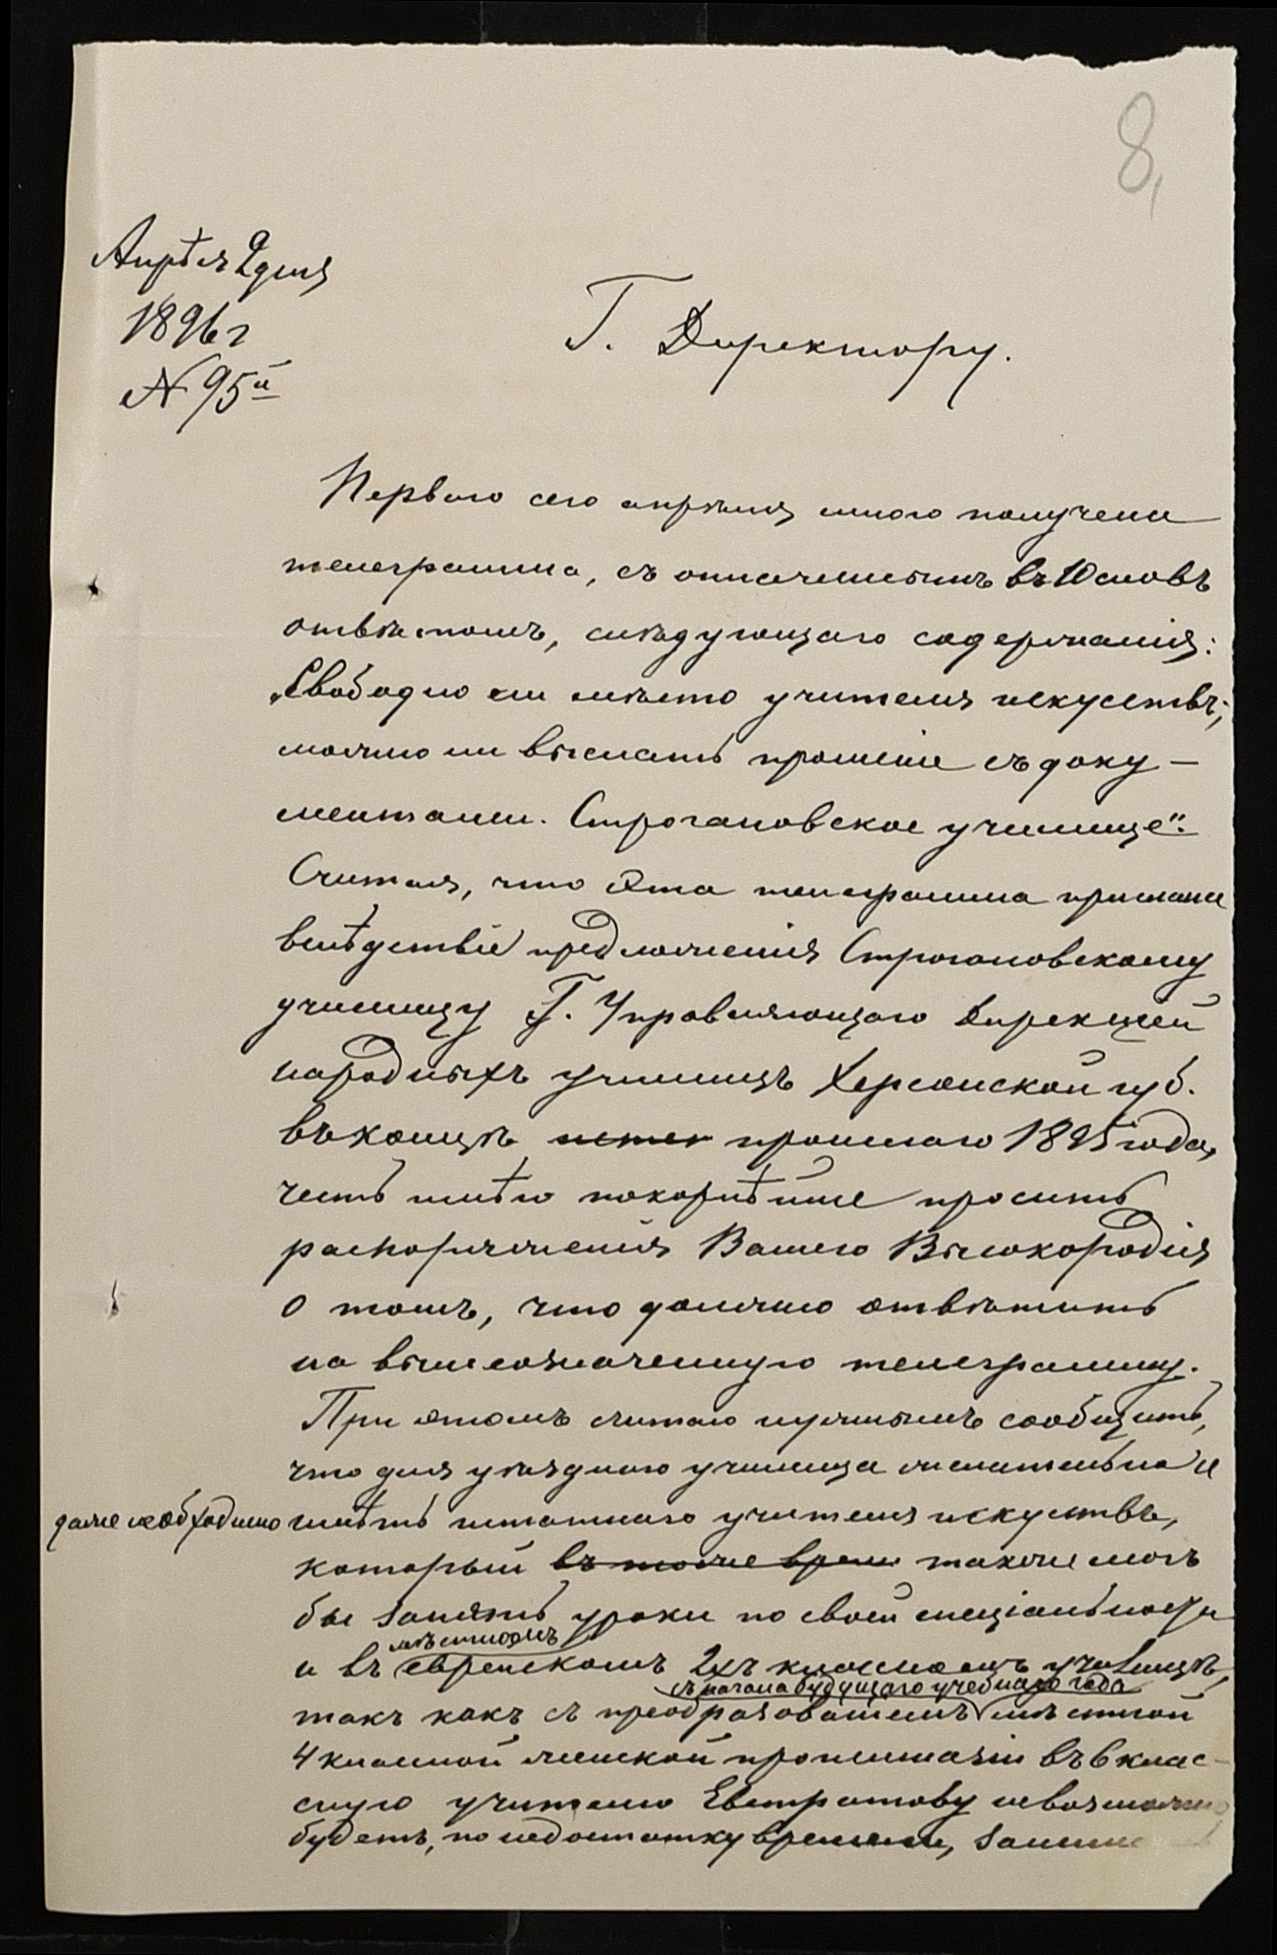 8,
Апрѣля 2 дня
1896 г
№ 95й
Г. Директору.
Перваго сего апрѣля мною получена
телеграмма, съ оплаченнымъ въ 10 словъ
отвѣтомъ, слѣдующаго содержанія:
„Свободно ли мѣсто учителя искуствъ;
можно ли выслать прошеніе съ доку-
ментами. Строгановское училище".
Считая, что эта телеграмма прислана
вслѣдствіе предложенія Строгановскому
училищу Г. Управляющаго Дирекціей
народныхъ училищъ Херсонской губ.
въ концѣ истек прошлаго 1895 года,
честь имѣю покорнѣйше просить
распоряженія Вашего Высокородія
о томъ, что должно отвѣтить
на вышеозначенную телеграмму.
При этомъ считаю нужнымъ сообщить,
что для уѣзднаго училища желательно и
даже необходимо имѣть штатнаго учителя искуствъ,
который въ тоже время также могъ
бы занять уроки по своей спеціальности
мѣстномъ
и въ еврейскомъ 2хъ классномъ училищѣ,
съ начала будущаго учебнаго года
такъ какъ съ преобразованіемъ мѣстной
4 классной женской прогимназіи въ 6 клас-
сную учителю Евстратову невозможно
будетъ, по недостатку времени,